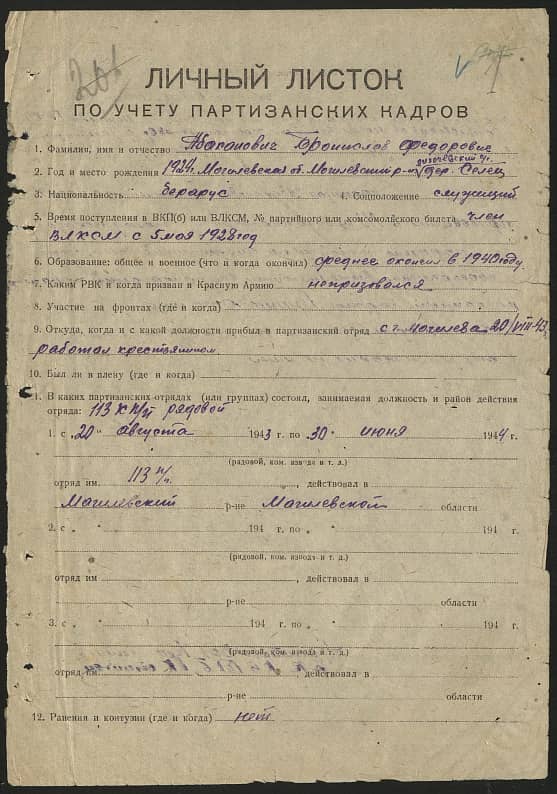 ЛИЧНЫЙ ЛИСТОК
ПО УЧЕТУ ПАРТИЗАНСКИХ КАДРОВ
1. Фамилия, имя и отчество Абаканович Бронислав Федорович
2. Год и место рождения 1924г. Могилевская об. Могилевский р-н дер. Селец
3. Национальность беларус 4. Соцположение служащий
5. Время поступления в ВКП(б) или ВЛКСМ, № партийного или комсомольского билета член
ВЛКСМ с 5 мая 1928 год
6. Образование: общее и военное (что и когда окончил) среднее окончил в 1940 году.
7. Каким РВК и когда призван в Красную Армию непризовался
8. Участие на фронтах (где и когда)
9. Откуда, когда и с какой должности прибыл в партизанский отряд с г. Могилева 20/VIII-43
работал крестьянином
10. Был ли в плену (где и когда)
1. В каких партизанских отрядах (или группах) состоял, занимаемая должность и район действия
отряда: 113 п/п рядовой
1. с „20“ августа 1943 г. по „30“ июня 1944 г.
(рядовой, ком. взвода и т. д.)
отряд им 113 п/п, действовал в
Магилевский р-не Магилевской области
2. с „ “ 194 г. по „ “ 194 г.
(рядовой, ком. взвода и т. д.)
отряд им , действовал в
р-не области
3. с „ “ 194 г. по „ “ 194 г.
(рядовой, ком. взвода и т. д.)
отряд им , действовал в
р-не области
12. Ранения и контузии (где и когда) нет